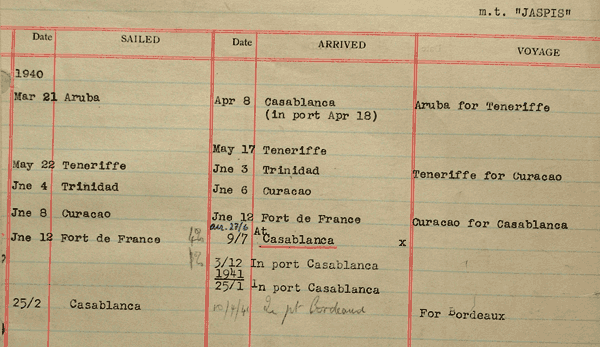 m.t. "JASPIS"
Date SAILED Date ARRIVED VOYAGE
1940
Mar 21 Aruba Apr 8 Casablanca Aruba for Teneriffe
(in port Apr 18)
May 17 Teneriffe
May 22 Teneriffe Jne 3 Trinidad Teneriffe for Curacao
Jne 4 Trinidad Jne 6 Curacao
Jne 8 Curacao Jne 12 Fort de France Curacao for Casablanca
arr. 23/6 At
Jne 12 Fort de France 9/7 Casablanca x
3/12 In port Casablanca
1941
25/1 In port Casablanca
25/2 Casablanca In pt Bordeaux For Bordeaux